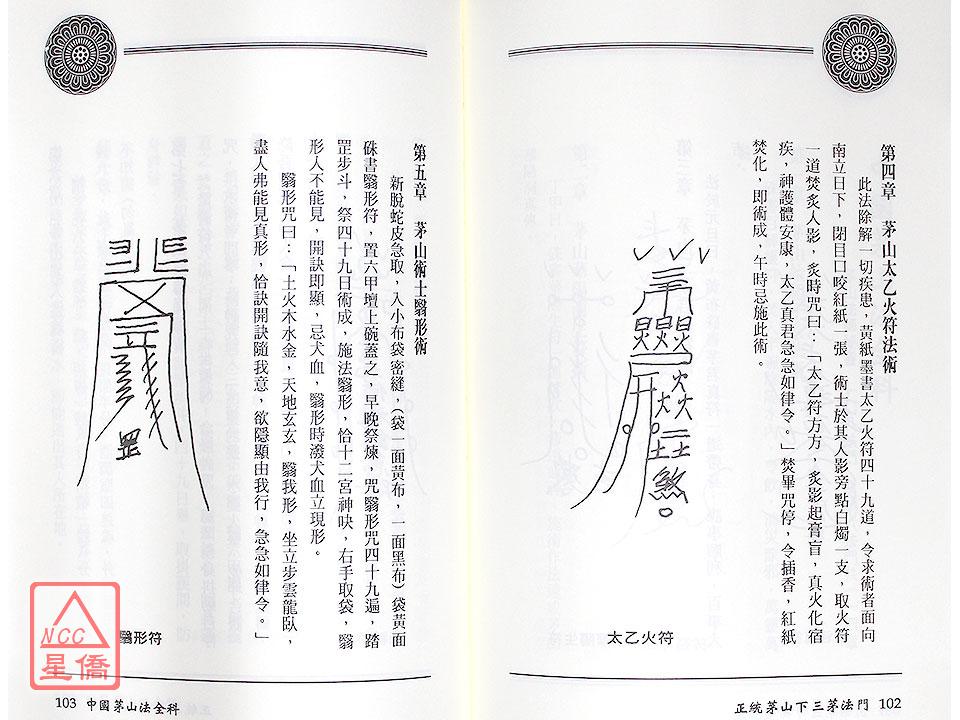 第四章　茅山太乙火符法術
此法除解一切疾患，黃紙墨書太乙火符四十九道，令求術者面向
南立日下，閉目口咬紅紙一張，術士於其人影旁點白燭一支，取火符
一道焚炙人影，炙時咒曰：「太乙符方方，炙影起膏盲，真火化宿
疾，神護體安康，太乙真君急急如律令。」焚畢咒停，令插香，紅紙
焚化，即術成，午時忌施此術。
太乙火符
正統茅山下三茅法門 102
第五章　茅山術士翳形術
新脫蛇皮急取，入小布袋密縫，（袋一面黃布，一面黑布）袋黃面
硃書翳形符，置六甲壇上碗蓋之，早晚祭煉，咒翳形咒四十九遍，踏
罡步斗，祭四十九日術成，施法翳形，恰十二宮神吷，右手取袋，翳
形人不能見，開訣即顯，忌犬血，翳形時潑犬血立現形。
翳形咒曰：「土火木水金，天地玄玄，翳我形，坐立步雲龍隊，
盡人弗能見真形，恰訣開訣隨我意，欲隱顯由我行，急急如律令。」
翳形符
103 中國茅山法全科
NCC
星僑